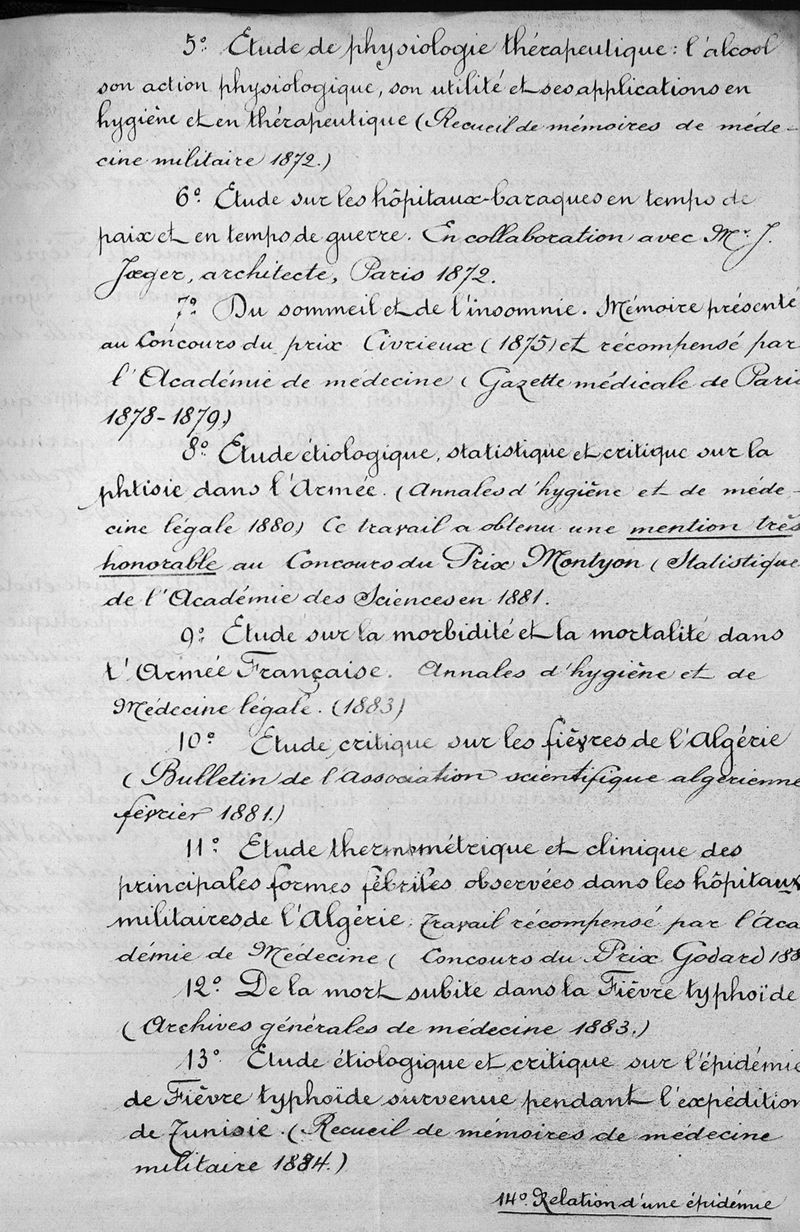 5° Etude de physiologie thérapeutique : l'alcool
son action physiologique, son utilité et ses applications en
hygiène et en thérapeutique (Recueil de mémoires de méde-
cine militaire 1872.)
6° Etude sur les hôpitaux-baraques en temps de
paix et en temps de guerre. En collaboration avec Mr. J.
Jæger, architecte, Paris 1872.
7° Du sommeil et de l'insomnie. Mémoire présenté
au Concours du prix Civrieux (1875) et récompensé par
l'Académie de médecine (Gazette médicale de Paris
1878-1879)
8° Etude étiologique, statistique et critique sur la
phtisie dans l'Armée. (Annales d'hygiène et de méde-
cine légale 1880) Ce travail a obtenu une mention très
honorable au Concours du Prix Montyon (Statistique
de l'Académie des Sciences en 1881.
9° Etude sur la morbidité et la mortalité dans
l'Armée Française. Annales d'hygiène et de
Médecine légale. (1883)
10° Etude critique sur les fièvres de l'Algérie
(Bulletin de l'Association scientifique algérienne
février 1881.)
11° Etude thermométrique et clinique des
principales formes fébriles observées dans les hôpitaux
militaires de l'Algérie. Travail récompensé par l'Aca
démie de Médecine (Concours du Prix Godard 188
12° De la mort subite dans la Fièvre typhoïde
(Archives générales de médecine 1883.)
13° Etude étiologique et critique sur l'épidémie
de Fièvre typhoïde survenue pendant l'expédition
de Tunisie. (Recueil de mémoires de médecine
militaire 1884.)
14° Relation d'une épidémie